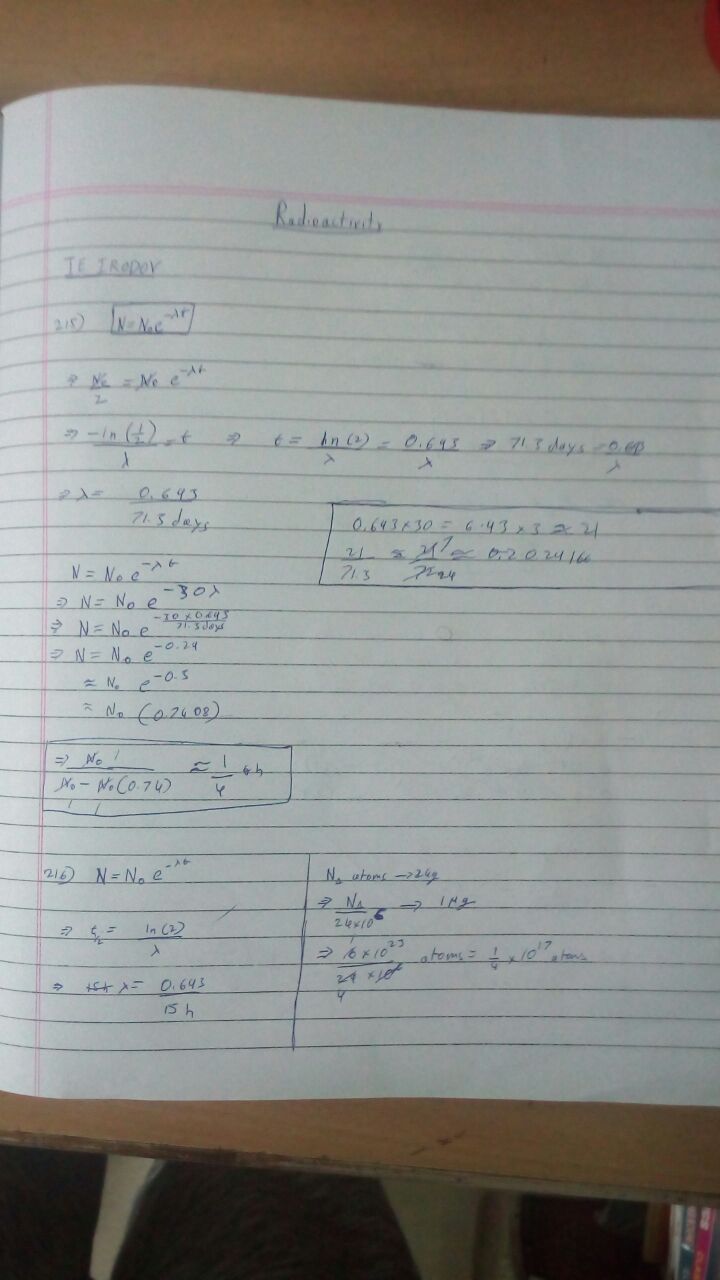 Radioactivity
IE IRODOV
215) N = N₀e^-λt
⇒ N₀/2 = N₀ e^-λt
⇒ -ln(1/2)/λ = t ⇒ t = ln(2)/λ = 0.693/λ ⇒ 71.3 days = 0.693/λ
⇒ λ = 0.693/71.3 days
0.693×30 = 6.93×3 ≈ 21
21/71.3 ≈
N = N₀ e^-λt
⇒ N = N₀ e^-30λ
⇒ N = N₀ e^-30×0.693/71.3 days
⇒ N = N₀ e^-0.29
≈ N₀ e^-0.3
≈ N₀ (0.7408)
⇒ N₀ 1/N₀ - N₀(0.74) ≈ 1/4 th
1 1
216) N = N₀ e^-λt
⇒ t½ = ln(2)/λ
⇒ λ = 0.693/15 h
N_A atoms → 24g
⇒ N_A/24×10^6 → 1μg
⇒ 6×10^23/24×10^6 atoms = 1/4 × 10^17 atoms
1
4